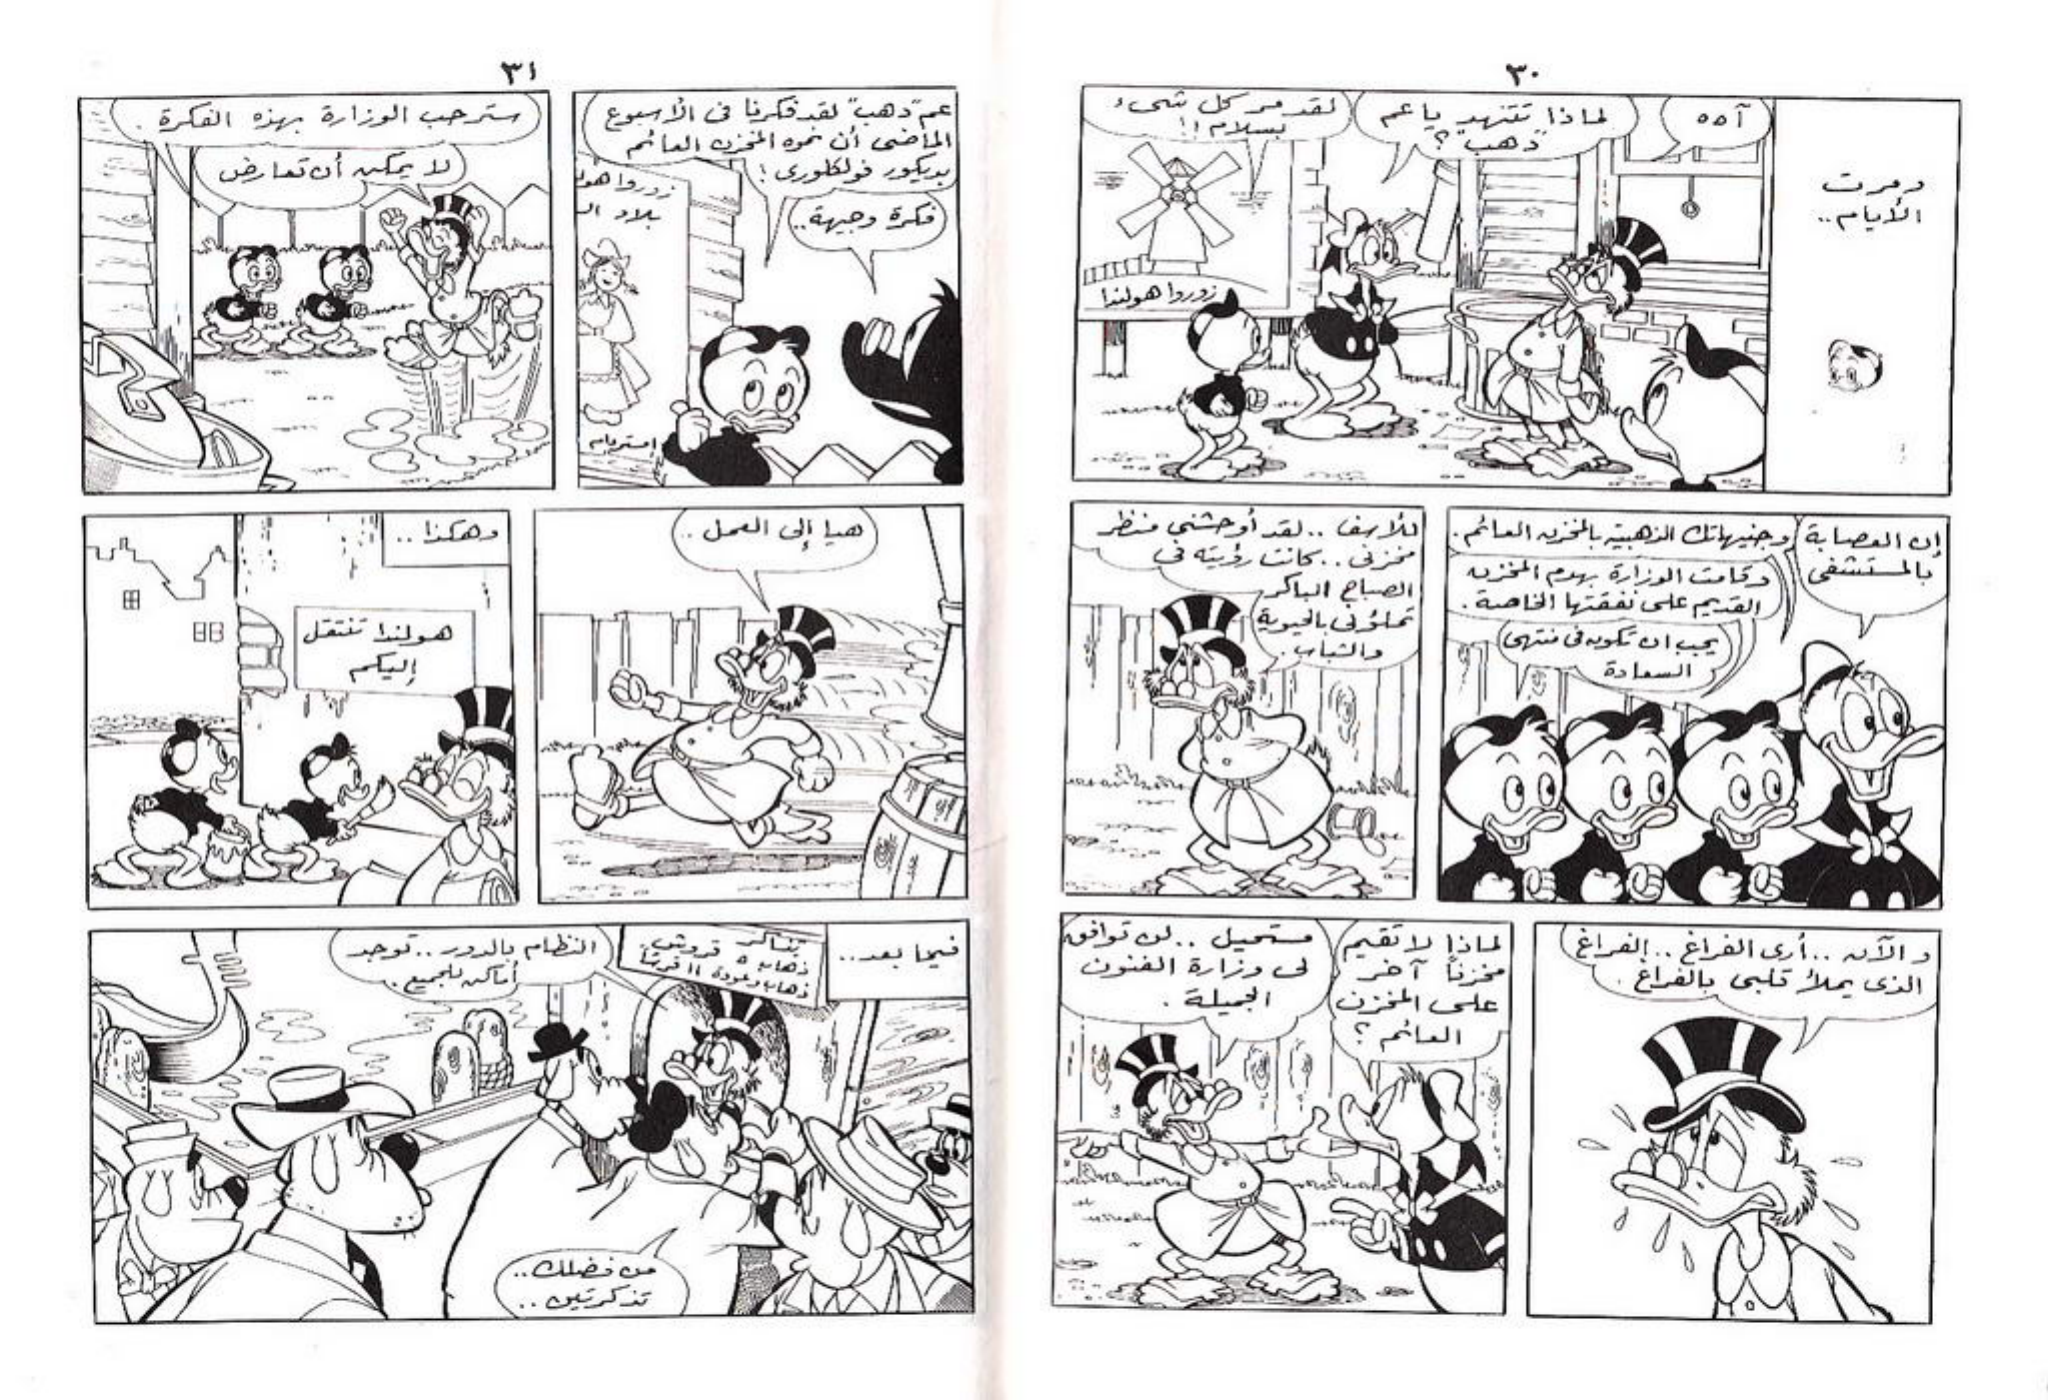 ٣٠
ومرت
الأيام..
آ ه ه
لماذا تتنهد يا عم
"دهب"؟
لقد مر كل شىء
بسلام!!
زوروا هولندا
إن العصابة
بالمستشفى
وجنيهاتك الذهبية بالمخزن العائم.
وقامت الوزارة بهدم المخزن
القديم على نفقتها الخاصة.
يجب ان تكون فى منتهى
السعادة
للأسف .. لقد أوحشنى منظر
مخزنى .. كانت رؤيته فى
الصباح الباكر
تملؤنى بالحيوية
والشباب.
و الآن .. أرى الفراغ .. الفراغ
الذى يملأ قلبى بالفراغ.
لماذا لا تقيم
مخزناً آخر
على المخزن
العائم؟
مستحيل .. لن توافق
لى وزارة الفنون
الجميلة.
٣١
عم "دهب" لقد فكرنا فى الأسبوع
الماضى أن نموه المخزن العائم
بديكور فولكلورى!
فكرة وجيهة..
زوروا هول
بلاد ال
امستردام
سترحب الوزارة بهذه الفكرة.
لا يمكن أن تعارض
هيا إلى العمل ..
وهكذا ..
هولندا تنتقل
إليكم
فيما بعد..
تذاكر
ذهاب ٩ قروش.
ذهاب وعودة ١١ قرشا
النظام بالدور .. توجد
أماكن للجميع.
من فضلك..
تذكرتين ..